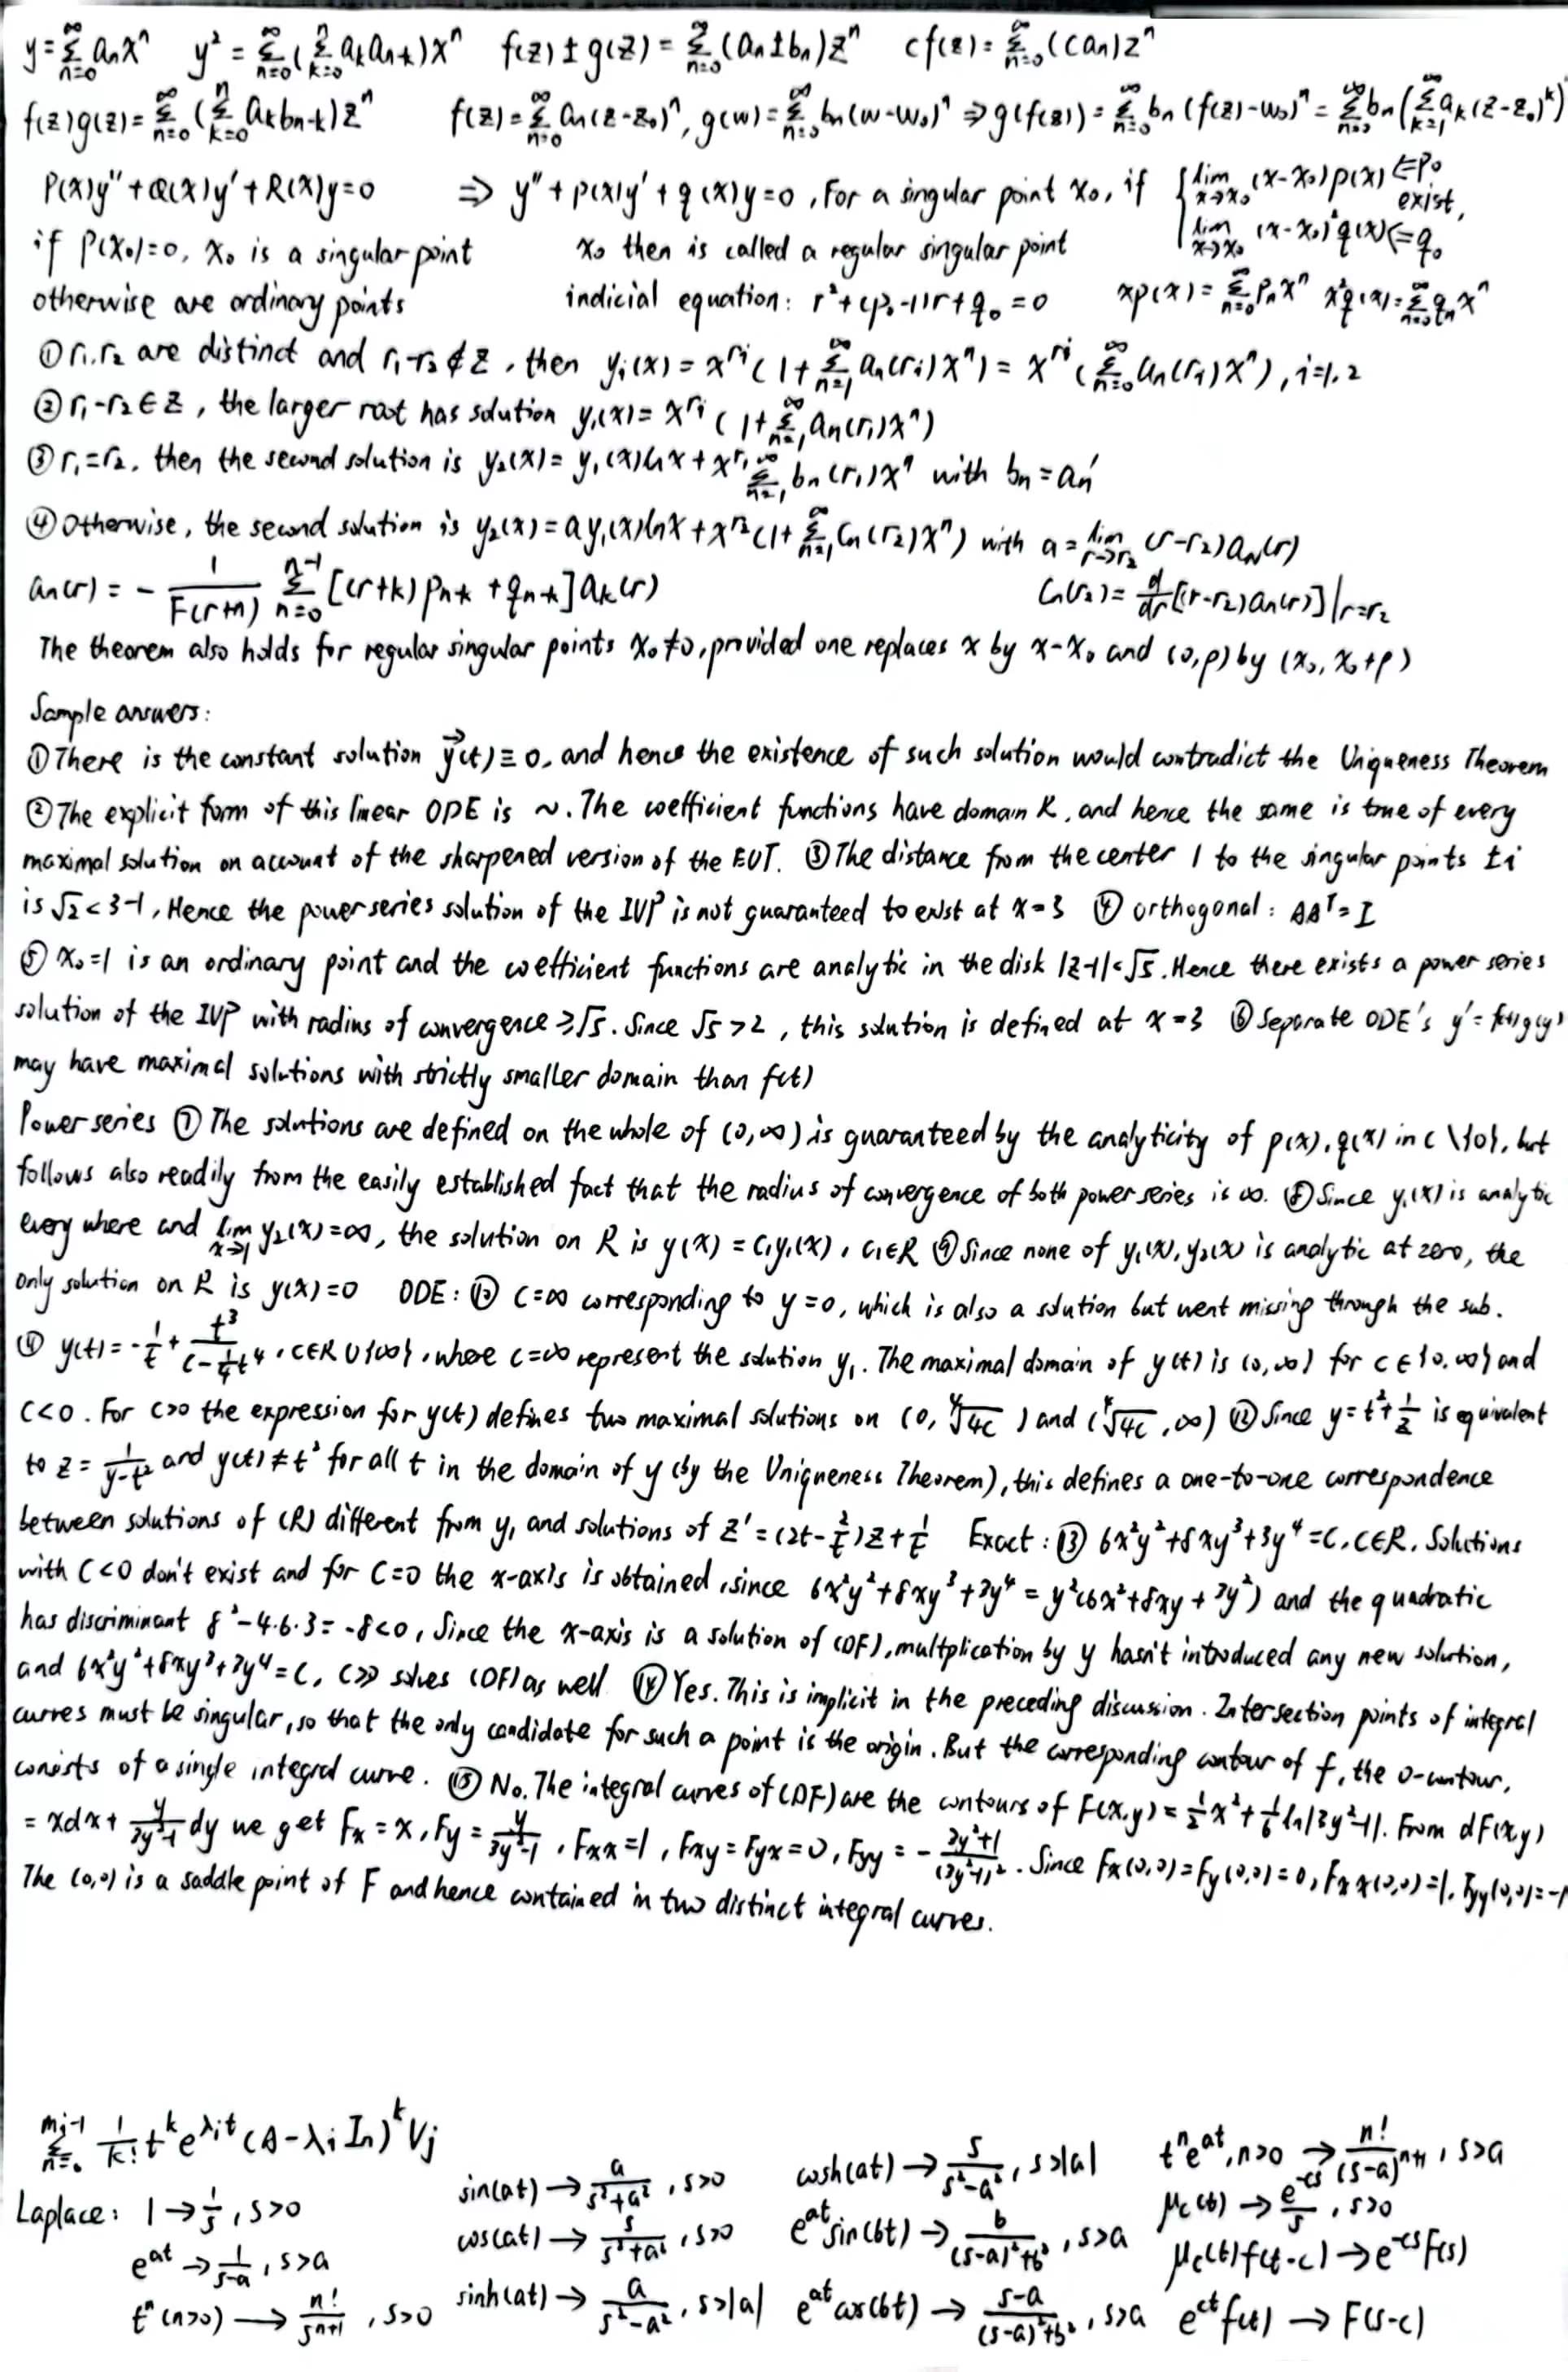 y=∑_{n=0}^∞ aₙxⁿ  y²=∑_{n=0}^∞(∑_{k=0}^n a_k a_{n-k})xⁿ  f(z)±g(z)=∑_{n=0}^∞(aₙ±bₙ)zⁿ  cf(z)=∑_{n=0}^∞(caₙ)zⁿ
f(z)g(z)=∑_{n=0}^∞(∑_{k=0}^n a_k b_{n-k})zⁿ  f(z)=∑_{n=0}^∞ aₙ(z-z₀)ⁿ, g(w)=∑_{n=0}^∞ bₙ(w-w₀)ⁿ ⇒ g(f(z))=∑_{n=0}^∞ bₙ(f(z)-w₀)ⁿ=∑_{n=0}^∞ bₙ(∑_{k=1}^∞ a_k(z-z₀)^k)
P(x)y''+Q(x)y'+R(x)y=0 ⇒ y''+p(x)y'+q(x)y=0, For a singular point x₀, if { lim_{x→x₀}(x-x₀)p(x) ⇐p₀ exist,
if P(x₀)=0, x₀ is a singular point  x₀ then is called a regular singular point  lim_{x→x₀}(x-x₀)²q(x) ⇐q₀
otherwise are ordinary points  indicial equation: r²+(p₀-1)r+q₀=0  xp(x)=∑_{n=0}^∞ pₙxⁿ x²q(x)=∑_{n=0}^∞ qₙxⁿ
① r₁.r₂ are distinct and r₁-r₂∉Z, then yᵢ(x)=x^{rᵢ}(1+∑_{n=1}^∞ aₙ(rᵢ)xⁿ)=x^{rᵢ}(∑_{n=0}^∞ aₙ(rᵢ)xⁿ), i=1,2
② r₁-r₂∈Z, the larger root has solution y₁(x)=x^{r₁}(1+∑_{n=1}^∞ aₙ(r₁)xⁿ)
③ r₁=r₂, then the second solution is y₂(x)=y₁(x)lnx+x^{r₁}∑_{n=1}^∞ bₙ(r₁)xⁿ with bₙ=aₙ'
④ Otherwise, the second solution is y₂(x)=ay₁(x)lnx+x^{r₂}(1+∑_{n=1}^∞ cₙ(r₂)xⁿ) with a=lim_{r→r₂}(r-r₂)a_N(r)
aₙ(r)=-\frac{1}{F(r+n)}∑_{n=0}^{n-1}[(r+k)p_{n-k}+q_{n-k}]a_k(r)  cₙ(r₂)=\frac{d}{dr}[(r-r₂)aₙ(r)]|_{r=r₂}
The theorem also holds for regular singular points x₀≠0, provided one replaces x by x-x₀ and (0,ρ) by (x₀, x₀+ρ)
Sample answers:
① There is the constant solution y⃗(t)≡0, and hence the existence of such solution would contradict the Uniqueness Theorem
② The explicit form of this linear ODE is ~. The coefficient functions have domain R, and hence the same is true of every
maximal solution on account of the sharpened version of the EUT. ③ The distance from the center 1 to the singular points ±i
is √2<3-1, Hence the power series solution of the IVP is not guaranteed to exist at x=3 ④ orthogonal: AAᵀ=I
⑤ x₀=1 is an ordinary point and the coefficient functions are analytic in the disk |z-1|<√5. Hence there exists a power series
solution of the IVP with radius of convergence ≥√5. Since √5>2, this solution is defined at x=3 ⑥ Separate ODE's y'=f(t)g(y)
may have maximal solutions with strictly smaller domain than f(t)
Power series ⑦ The solutions are defined on the whole of (0,∞) is guaranteed by the analyticity of p(x), q(x) in C\{0}, but
follows also readily from the easily established fact that the radius of convergence of both power series is ∞. ⑧ Since y₁(x) is analytic
every where and lim_{x→1} y₂(x)=∞, the solution on R is y(x)=c₁y₁(x), c₁∈R ⑨ Since none of y₁(x), y₂(x) is analytic at zero, the
only solution on R is y(x)=0  ODE: ⑩ C=∞ corresponding to y=0, which is also a solution but went missing through the sub.
⑪ y(t)=-\frac{1}{t}+\frac{t³}{C-\frac{1}{4}t⁴}, C∈R∪{∞}, where C=∞ represent the solution y₁. The maximal domain of y(t) is (0,∞) for C∈{0,∞} and
C<0. For C>0 the expression for y(t) defines two maximal solutions on (0,∜4C) and (∜4C,∞) ⑫ Since y=t²+\frac{1}{z} is equivalent
to z=\frac{1}{y-t²} and y(t)≠t² for all t in the domain of y (by the Uniqueness Theorem), this defines a one-to-one correspondence
between solutions of (R) different from y₁ and solutions of z'=(2t-\frac{2}{t})z+\frac{1}{t}  Exact: ⑬ 6x²y²+8xy³+3y⁴=C, C∈R. Solutions
with C<0 don't exist and for C=0 the x-axis is obtained, since 6x²y²+8xy³+3y⁴=y²(6x²+8xy+3y²) and the quadratic
has discriminant 8²-4·6·3=-8<0, Since the x-axis is a solution of (DF), multplication by y hasn't introduced any new solution,
and 6x²y²+8xy³+3y⁴=C, C>0 solves (DF) as well ⑭ Yes. This is implicit in the preceding discussion. Intersection points of integral
curves must be singular, so that the only candidate for such a point is the origin. But the corresponding contour of f, the 0-contour,
consists of a single integral curve. ⑮ No. The integral curves of (DF) are the contours of F(x,y)=\frac{1}{2}x²+\frac{1}{6}ln|3y²-1|. From dF(x,y)
=xdx+\frac{y}{3y²-1}dy we get Fx=x, Fy=\frac{y}{3y²-1}, Fxx=1, Fxy=Fyx=0, Fyy=-\frac{3y²+1}{(3y²-1)²}. Since Fx(0,0)=Fy(0,0)=0, Fxx(0,0)=1, Fyy(0,0)=-1
The (0,0) is a saddle point of F and hence contained in two distinct integral curves.
∑_{n=0}^{mᵢ-1} \frac{1}{k!}t^k e^{λᵢt}(A-λᵢIₙ)^k vⱼ
Laplace: 1→\frac{1}{s}, s>0  sin(at)→\frac{a}{s²+a²}, s>0  cosh(at)→\frac{s}{s²-a²}, s>|a|  tⁿe^{at}, n>0→\frac{n!}{(s-a)^{n+1}}, s>a
e^{at}→\frac{1}{s-a}, s>a  cos(at)→\frac{s}{s²+a²}, s>0  e^{at}sin(bt)→\frac{b}{(s-a)²+b²}, s>a  μ_c(t)→\frac{e^{-cs}}{s}, s>0
tⁿ(n>0)→\frac{n!}{s^{n+1}}, s>0  sinh(at)→\frac{a}{s²-a²}, s>|a|  e^{at}cos(bt)→\frac{s-a}{(s-a)²+b²}, s>a  μ_c(t)f(t-c)→e^{-cs}F(s)
e^{ct}f(t)→F(s-c)